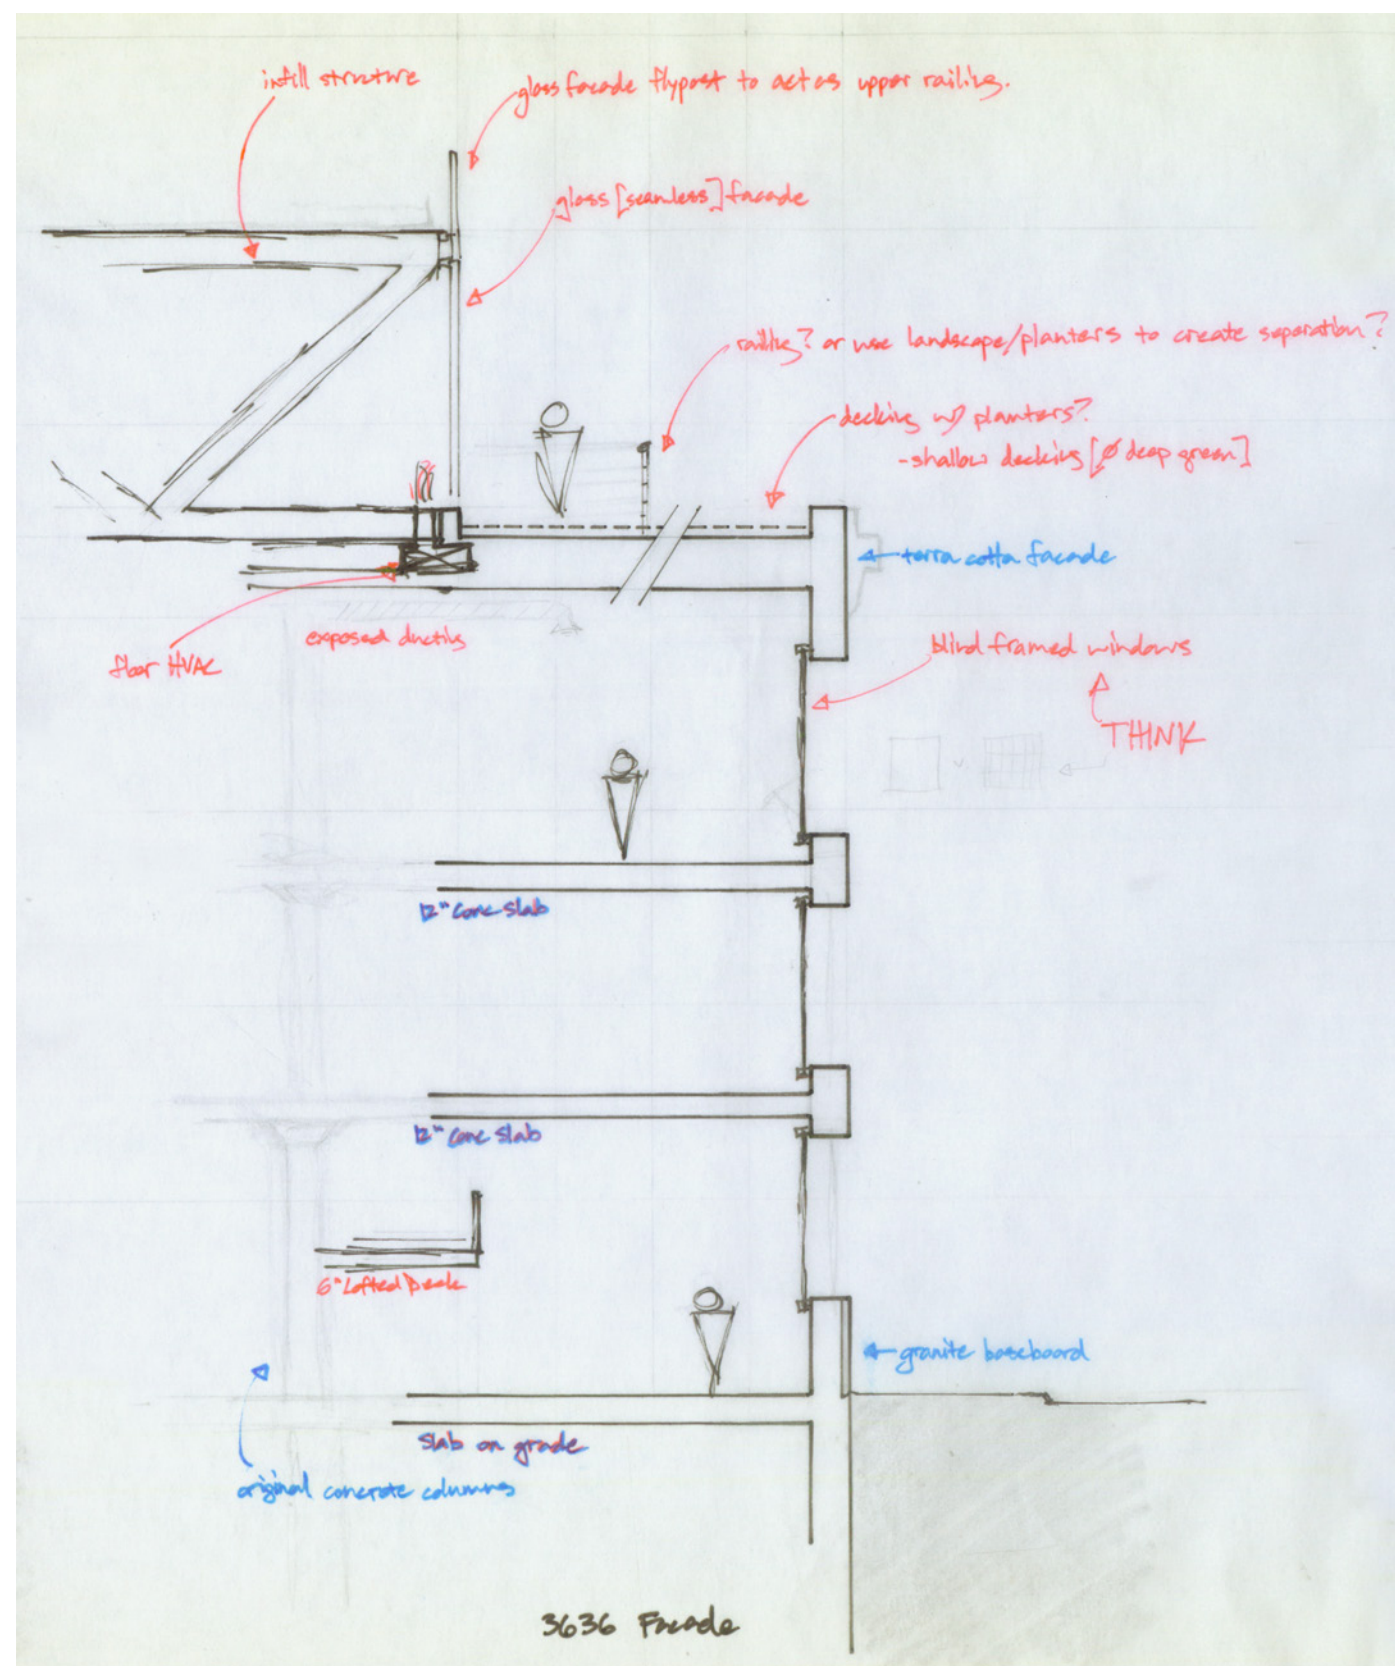 infill structure
glass facade flypast to act as upper railing.
glass [seamless] facade
railing? or use landscape/planters to create separation?
decking w/ planters?
-shallow decking [Ø deep green]
terra cotta facade
exposed ducting
floor HVAC
blind framed windows
THINK
12" conc slab
12" conc slab
6" Lofted Deck
granite baseboard
slab on grade
original concrete columns
3636 Facade